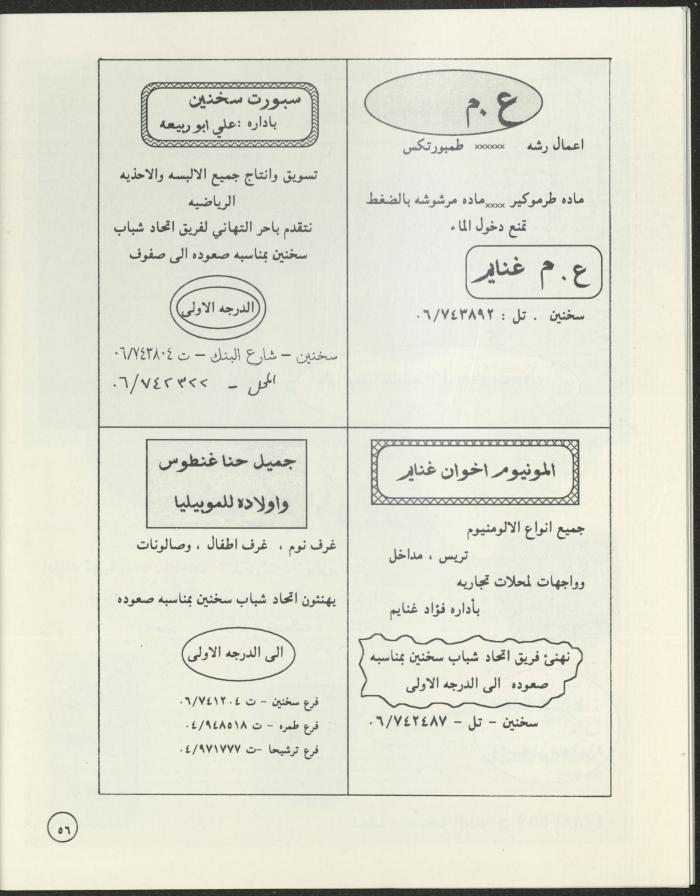 ع.م
اعمال رشه xxxxxx طمبورتكس
ماده طرموكير xxxx ماده مرشوشه بالضغط
تمنع دخول الماء
ع.م غنايم
سخنين . تل : ٠٦/٧٤٣٨٩٢
سبورت سخنين
باداره : علي ابو ربيعه
تسويق وانتاج جميع الالبسه والاحذيه
الرياضيه
نتقدم باحر التهاني لفريق اتحاد شباب
سخنين بمناسبه صعوده الى صفوف
الدرجه الاولى
سخنين – شارع البنك – ت ٠٦/٧٤٣٨٠٤
المحل – ٠٦/٧٤٢٣٢٢
المونيوم اخوان غنايم
جميع انواع الالومنيوم
تريس ، مداخل
وواجهات لمحلات تجاريه
بأداره فؤاد غنايم
نهنئ فريق اتحاد شباب سخنين بمناسبه
صعوده الى الدرجه الاولى
سخنين – تل – ٠٦/٧٤٢٤٨٧
جميل حنا غنطوس
واولاده للموبيليا
غرف نوم ، غرف اطفال ، وصالونات
يهنئون اتحاد شباب سخنين بمناسبه صعوده
الى الدرجه الاولى
فرع سخنين – ت ٠٦/٧٤١٢٠٤
فرع طمره – ت ٠٤/٩٤٨٥١٨
فرع ترشيحا –ت ٠٤/٩٧١٧٧٧
٥٦